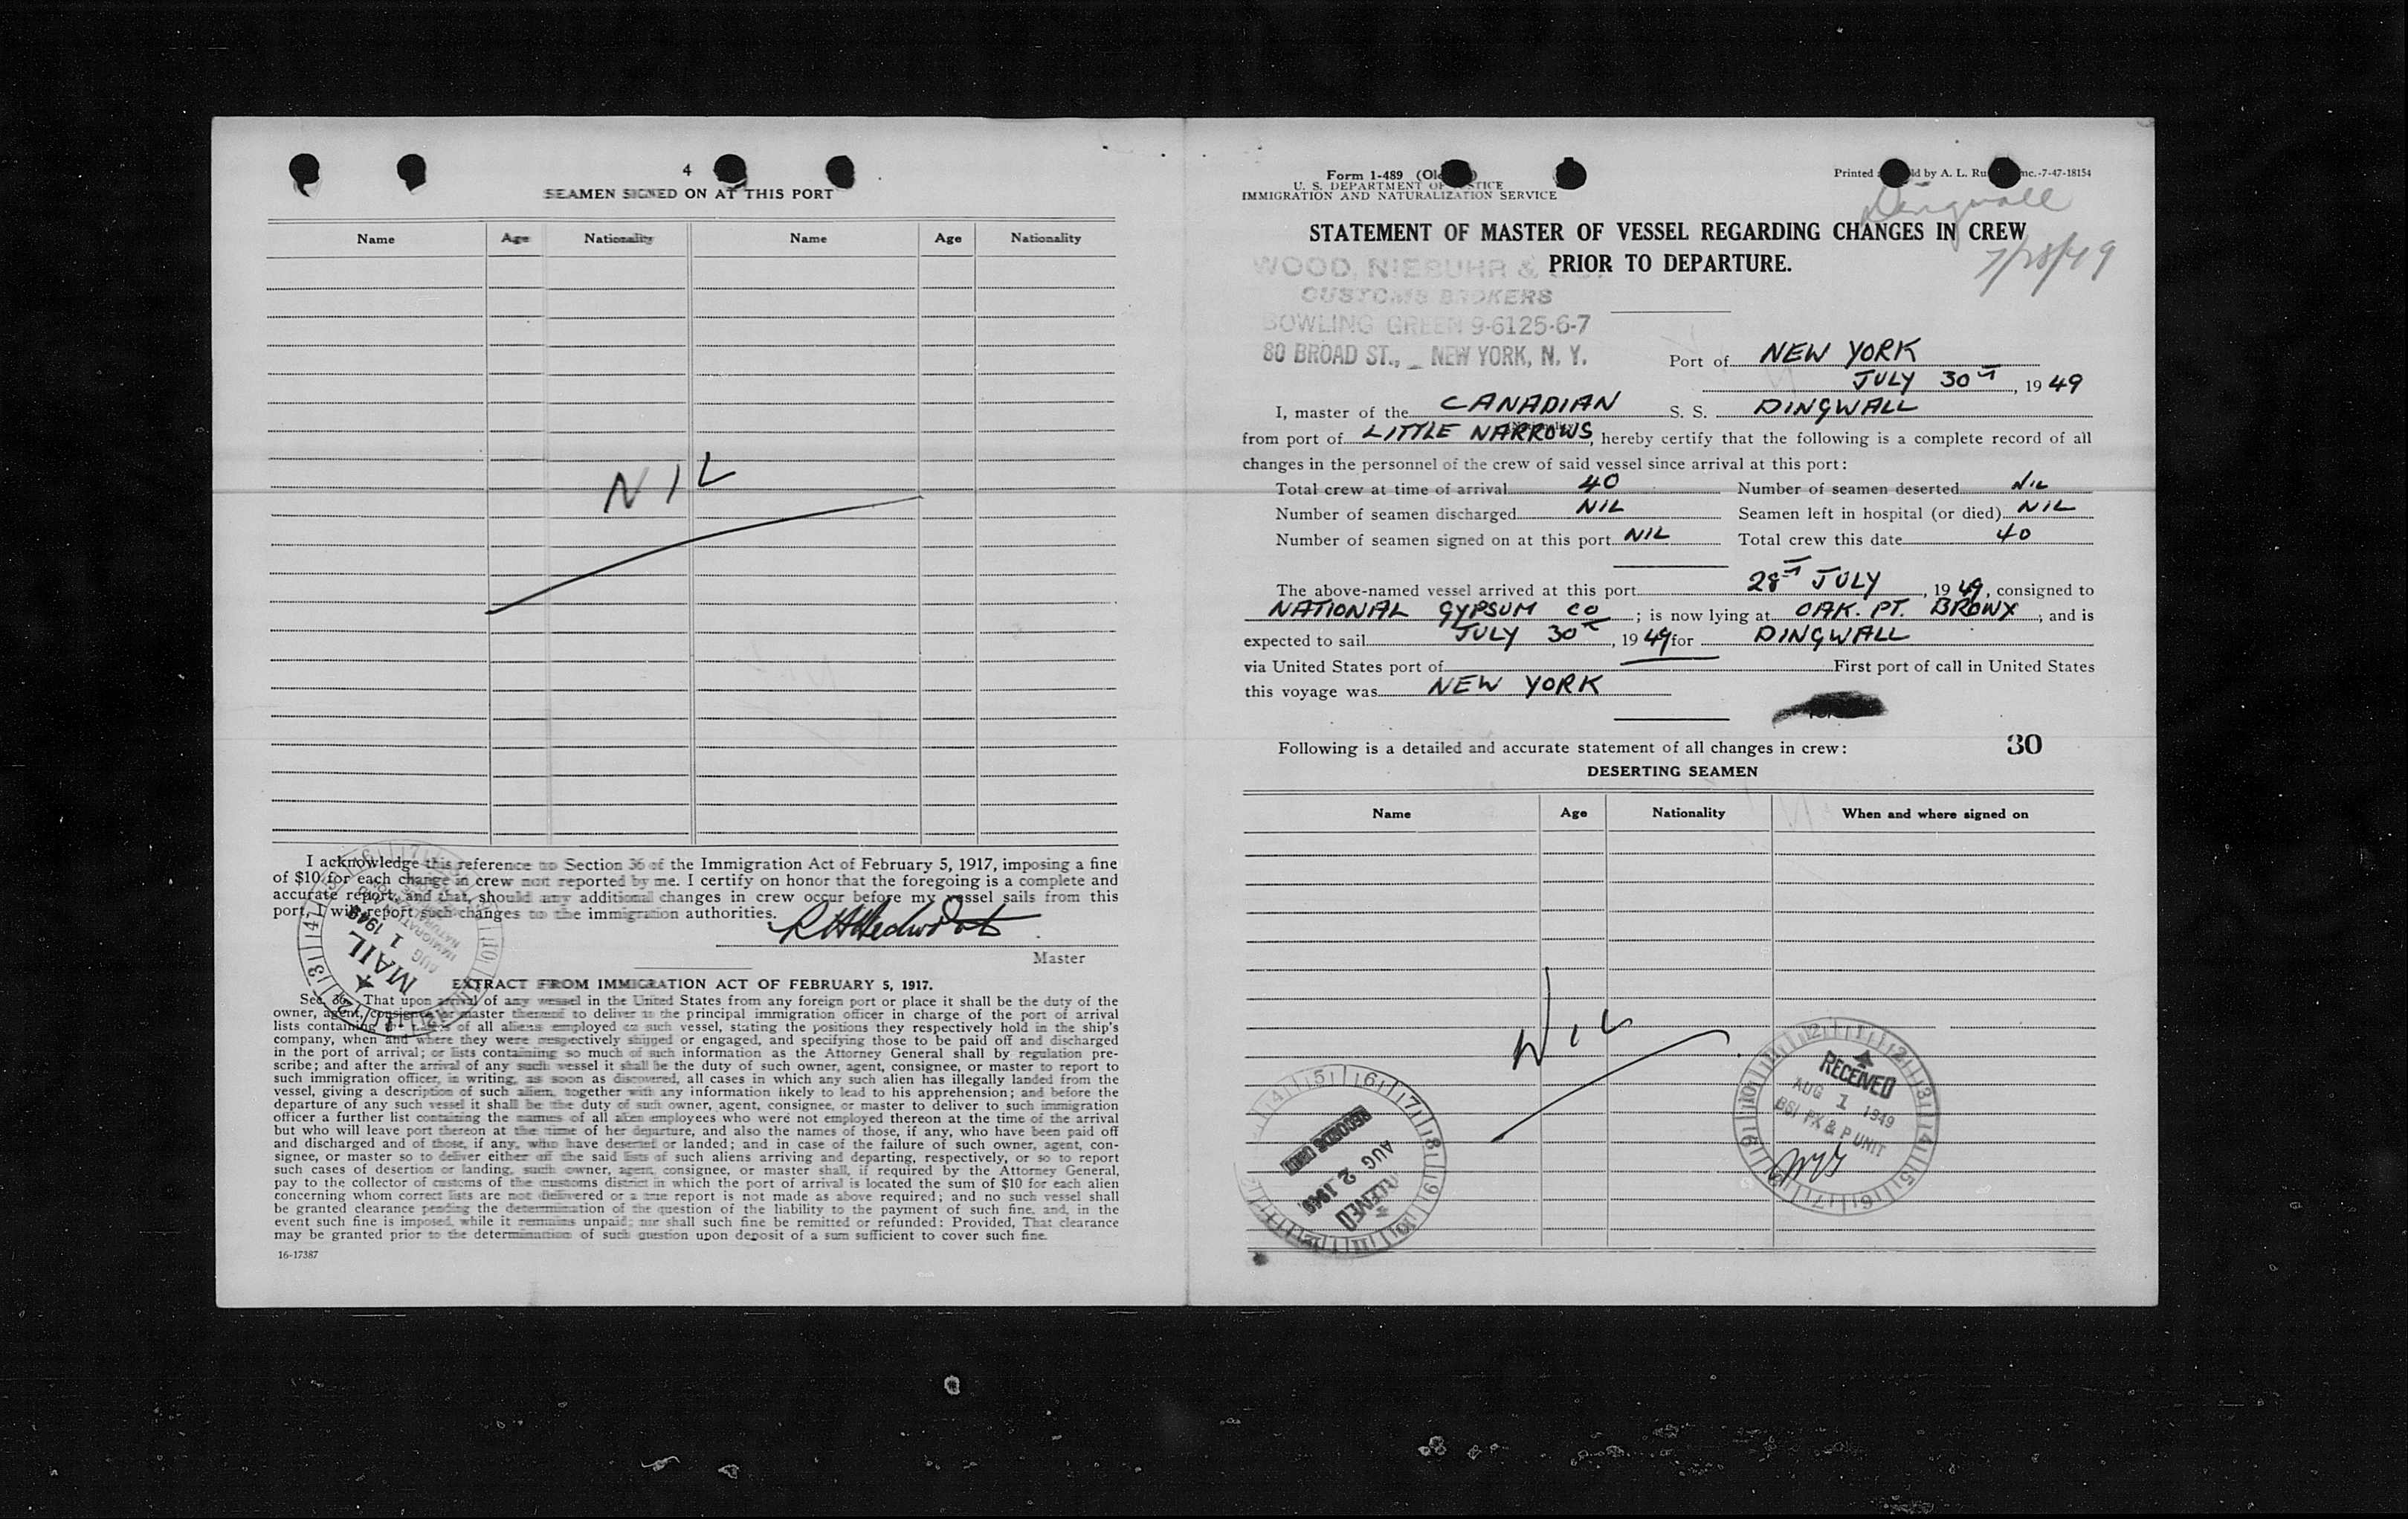 4
SEAMEN SIGNED ON AT THIS PORT
Name Age Nationality Name Age Nationality
NIL
I acknowledge this reference to Section 36 of the Immigration Act of February 5, 1917, imposing a fine
of $10 for each change in crew not reported by me. I certify on honor that the foregoing is a complete and
accurate report, and that, should any additional changes in crew occur before my vessel sails from this
port, I will report such changes to the immigration authorities.
Master
MAIL
AUG 1 1949
EXTRACT FROM IMMIGRATION ACT OF FEBRUARY 5, 1917.
Sec. 36. That upon arrival of any vessel in the United States from any foreign port or place it shall be the duty of the
owner, agent, consignee or master thereof to deliver to the principal immigration officer in charge of the port of arrival
lists containing the names of all aliens employed on such vessel, stating the positions they respectively hold in the ship's
company, when and where they were respectively shipped or engaged, and specifying those to be paid off and discharged
in the port of arrival; or lists containing so much of such information as the Attorney General shall by regulation pre-
scribe; and after the arrival of any such vessel it shall be the duty of such owner, agent, consignee, or master to report to
such immigration officer, in writing, as soon as discovered, all cases in which any such alien has illegally landed from the
vessel, giving a description of such alien, together with any information likely to lead to his apprehension; and before the
departure of any such vessel it shall be the duty of such owner, agent, consignee, or master to deliver to such immigration
officer a further list containing the names of all alien employees who were not employed thereon at the time of the arrival
but who will leave port thereon at the time of her departure, and also the names of those, if any, who have been paid off
and discharged and of those, if any, who have deserted or landed; and in case of the failure of such owner, agent, con-
signee, or master so to deliver either of the said lists of such aliens arriving and departing, respectively, or so to report
such cases of desertion or landing, such owner, agent, consignee, or master shall, if required by the Attorney General,
pay to the collector of customs of the customs district in which the port of arrival is located the sum of $10 for each alien
concerning whom correct lists are not delivered or a true report is not made as above required; and no such vessel shall
be granted clearance pending the determination of the question of the liability to the payment of such fine, and, in the
event such fine is imposed, while it remains unpaid; nor shall such fine be remitted or refunded: Provided, That clearance
may be granted prior to the determination of such question upon deposit of a sum sufficient to cover such fine.
16-17387
Form I-489
U. S. DEPARTMENT OF JUSTICE
IMMIGRATION AND NATURALIZATION SERVICE
Printed by A. L. -7-47-18154
Dingwall
7/28/49
STATEMENT OF MASTER OF VESSEL REGARDING CHANGES IN CREW
PRIOR TO DEPARTURE.
WOOD, NIEBUHR &
CUSTOMS BROKERS
BOWLING GREEN 9-6125-6-7
80 BROAD ST., NEW YORK, N. Y.
Port of NEW YORK
JULY 30T, 19 49
I, master of the CANADIAN S. S. DINGWALL
from port of LITTLE NARROWS, hereby certify that the following is a complete record of all
changes in the personnel of the crew of said vessel since arrival at this port:
Total crew at time of arrival 40 Number of seamen deserted NIL
Number of seamen discharged NIL Seamen left in hospital (or died) NIL
Number of seamen signed on at this port NIL Total crew this date 40
The above-named vessel arrived at this port 28T JULY, 19 49, consigned to
NATIONAL GYPSUM CO; is now lying at OAK. PT. BRONX; and is
expected to sail JULY 30T, 19 49 for DINGWALL
via United States port of First port of call in United States
this voyage was NEW YORK
Following is a detailed and accurate statement of all changes in crew: 30
DESERTING SEAMEN
Name Age Nationality When and where signed on
NIL
RECORDS UNIT
AUG 2 1949
RECEIVED
RECEIVED
AUG 1 1949
BSI PX & P UNIT